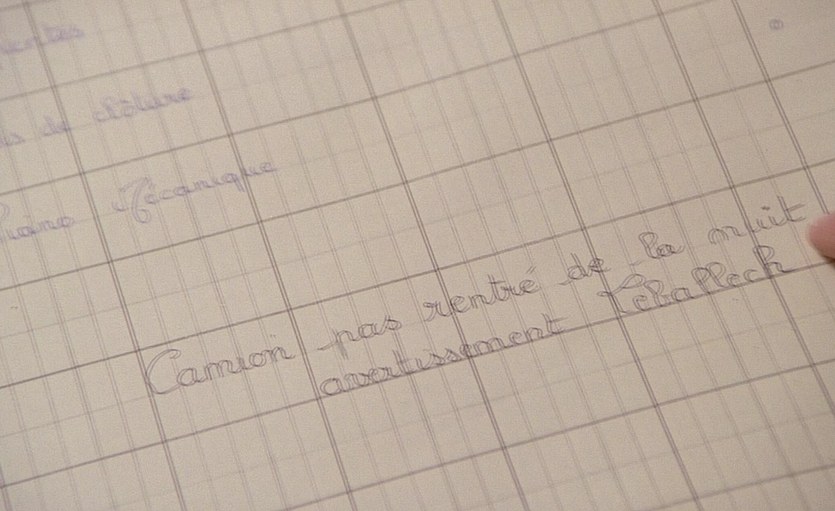 de clôture
Piano Mécanique
Camion pas rentré de la nuit
avertissement Teballech